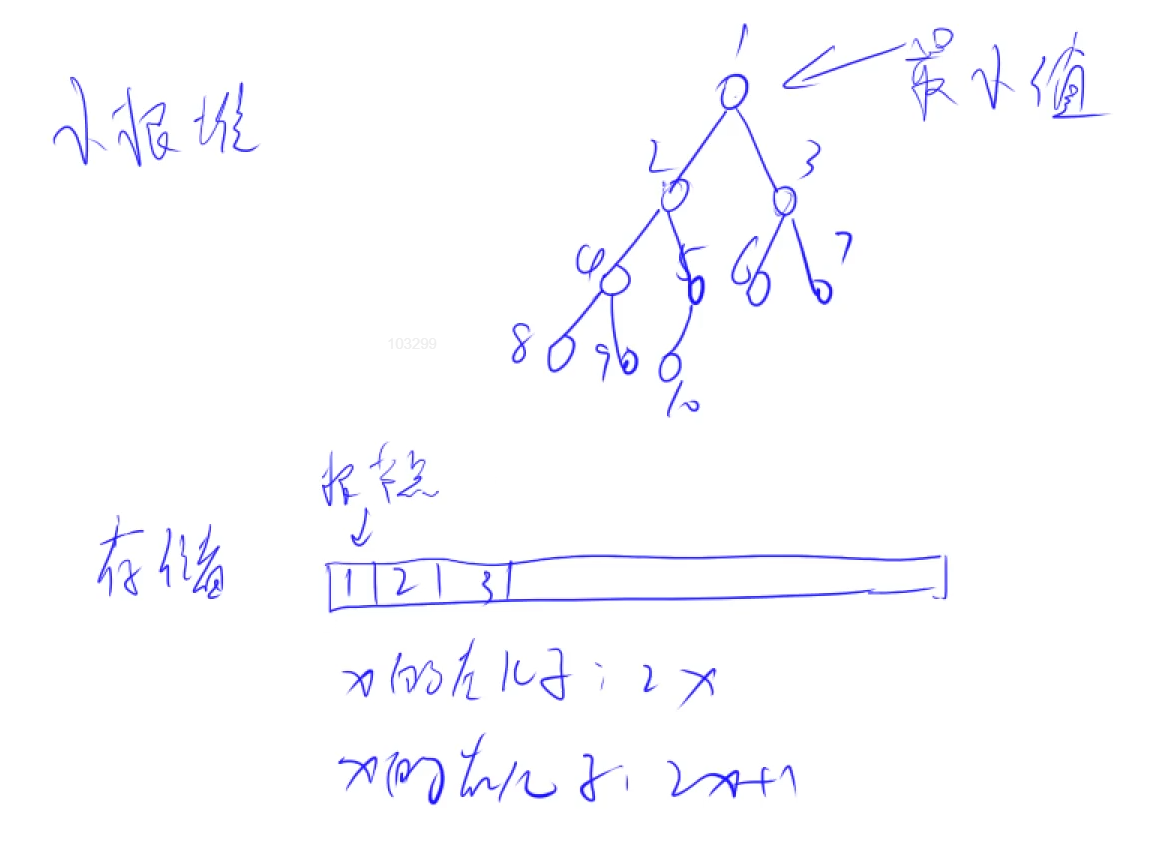 小根堆
最小值
1
2 3
4 5 6 7
8 9 10
103299
根节点
存储
1 2 3
x的左儿子: 2x
x的右儿子: 2x+1